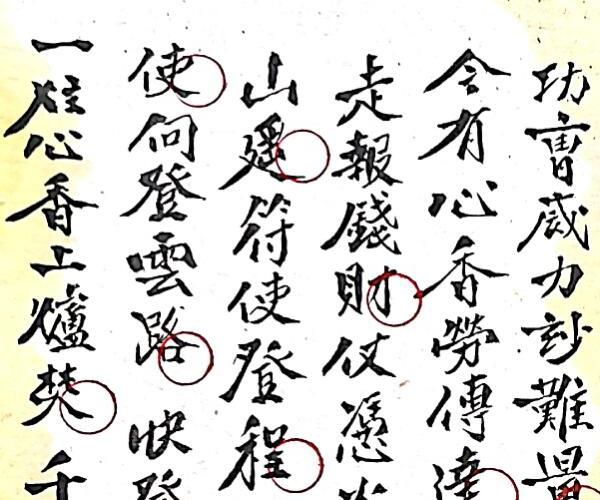 功曹威力訬難量
今有心香勞傳達
走報錢財仗憑
山遥符使登程
使向登雲路快登
一炷心香上爐焚千